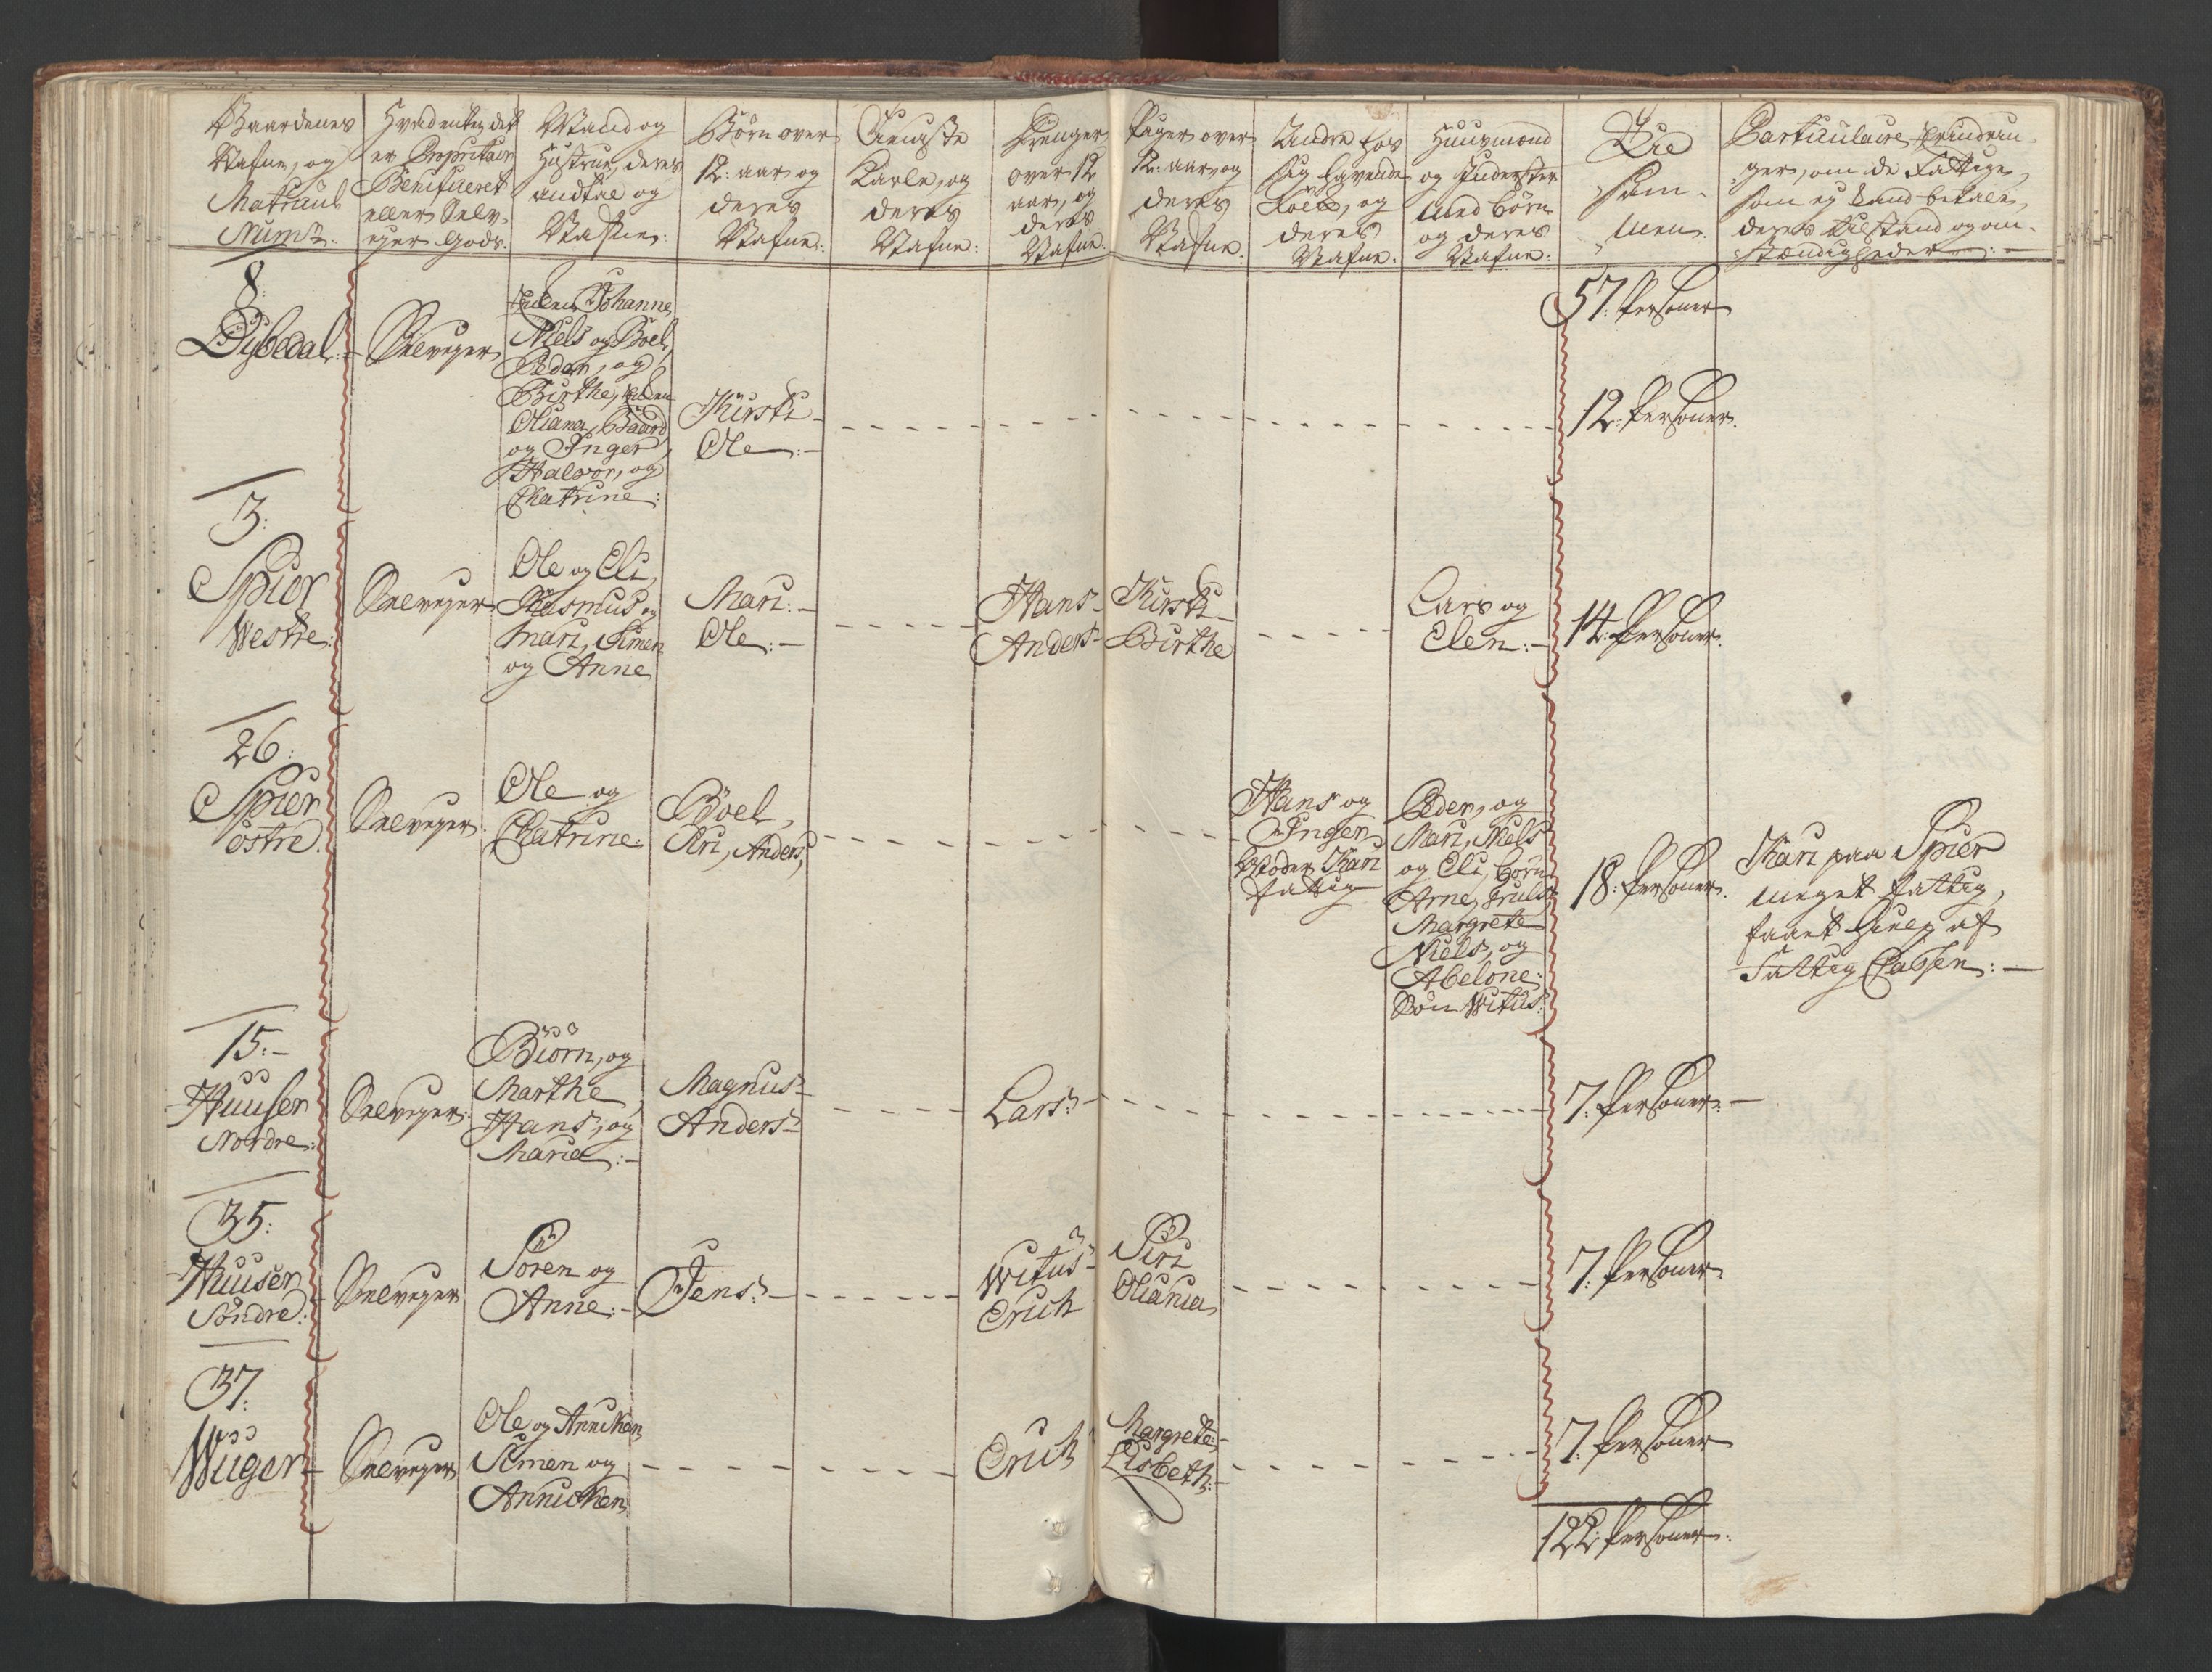 Gaardenes
Nafne, og
Matricul
Num:
Hvad enten det
er Proprietair
Beneficeret
eller Selv-
eyer Gods.
Mand og
Hustrue, deres
andtal og
Nafne:
Børn over
12: aar og
deres
Nafne:
Tieniste
Karle, og
deres
Nafne:
Drenger
over 12
aar, og
deres
Nafne:
Piger over
12: aar, og
deres
Nafne:
Andre hos
sig havende
Folk, og
deres
Nafne:
Huusmænd
og Inderster
med børn
og deres
Nafne:
Sum-
men:
Particulaire Erindrin-
ger, om de Fattige,
som ej kand betale,
deres tilstand og om-
stændigheder:
57: Personer
8:
Dybedal:
Selveyer
Johanne
Niels og Boel,
Peder, og
Birthe,
Oliana, Baard
og Inger,
Halvor, og
Chatrine:
Kirsti
Ole:
12: Personer.
3:
Spier
Westre:
Selveyer
Ole og Eli,
Rasmus og
Mari, Simen
og Anne
Mari:
Ole:
Hans
Anders
Kirsti
Birthe
Lars og
Elen:
14: Personer.
26:
Spier
östre.
Selveyer.
Ole og
Chatrine:
Boel,
Siri, Anders,
Hans og
Inger
Moder Kari
fattig
Peder, og
Mari, Niels
og Eli, børn
Arne, Truls
Margrete
Niels, og
Abelone:
Søn Witus:
18: Personer.
Kari paa Spier
meget fattig,
faaet hielp af
Fattig Cassen:
15:
Huuser
Nordre:
Selveyer:
Biörn, og
Marthe
Hans, og
Maria:
Magnus
Anders
Lars:
7: Personer:
35:
Huuser
Söndre:
Selveyer
Sören og
Anne:
Jens:
Witus
Erich
Siri
Oliana
7: Personer.
37:
Wüger
Selveyer
Ole og Anniken
Simen og
Annichen
Erich
Margrete:
Lisbeth:
7: Personer
122: Personer: